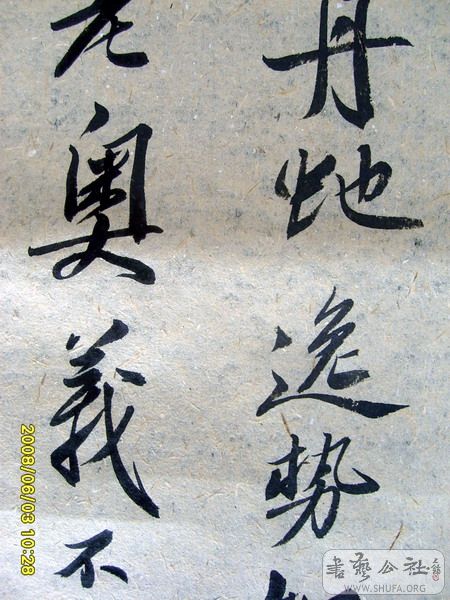 丹
逸势
奥義不
2008/06/03 10:28
書藝公社
WWW.SHUFA.ORG